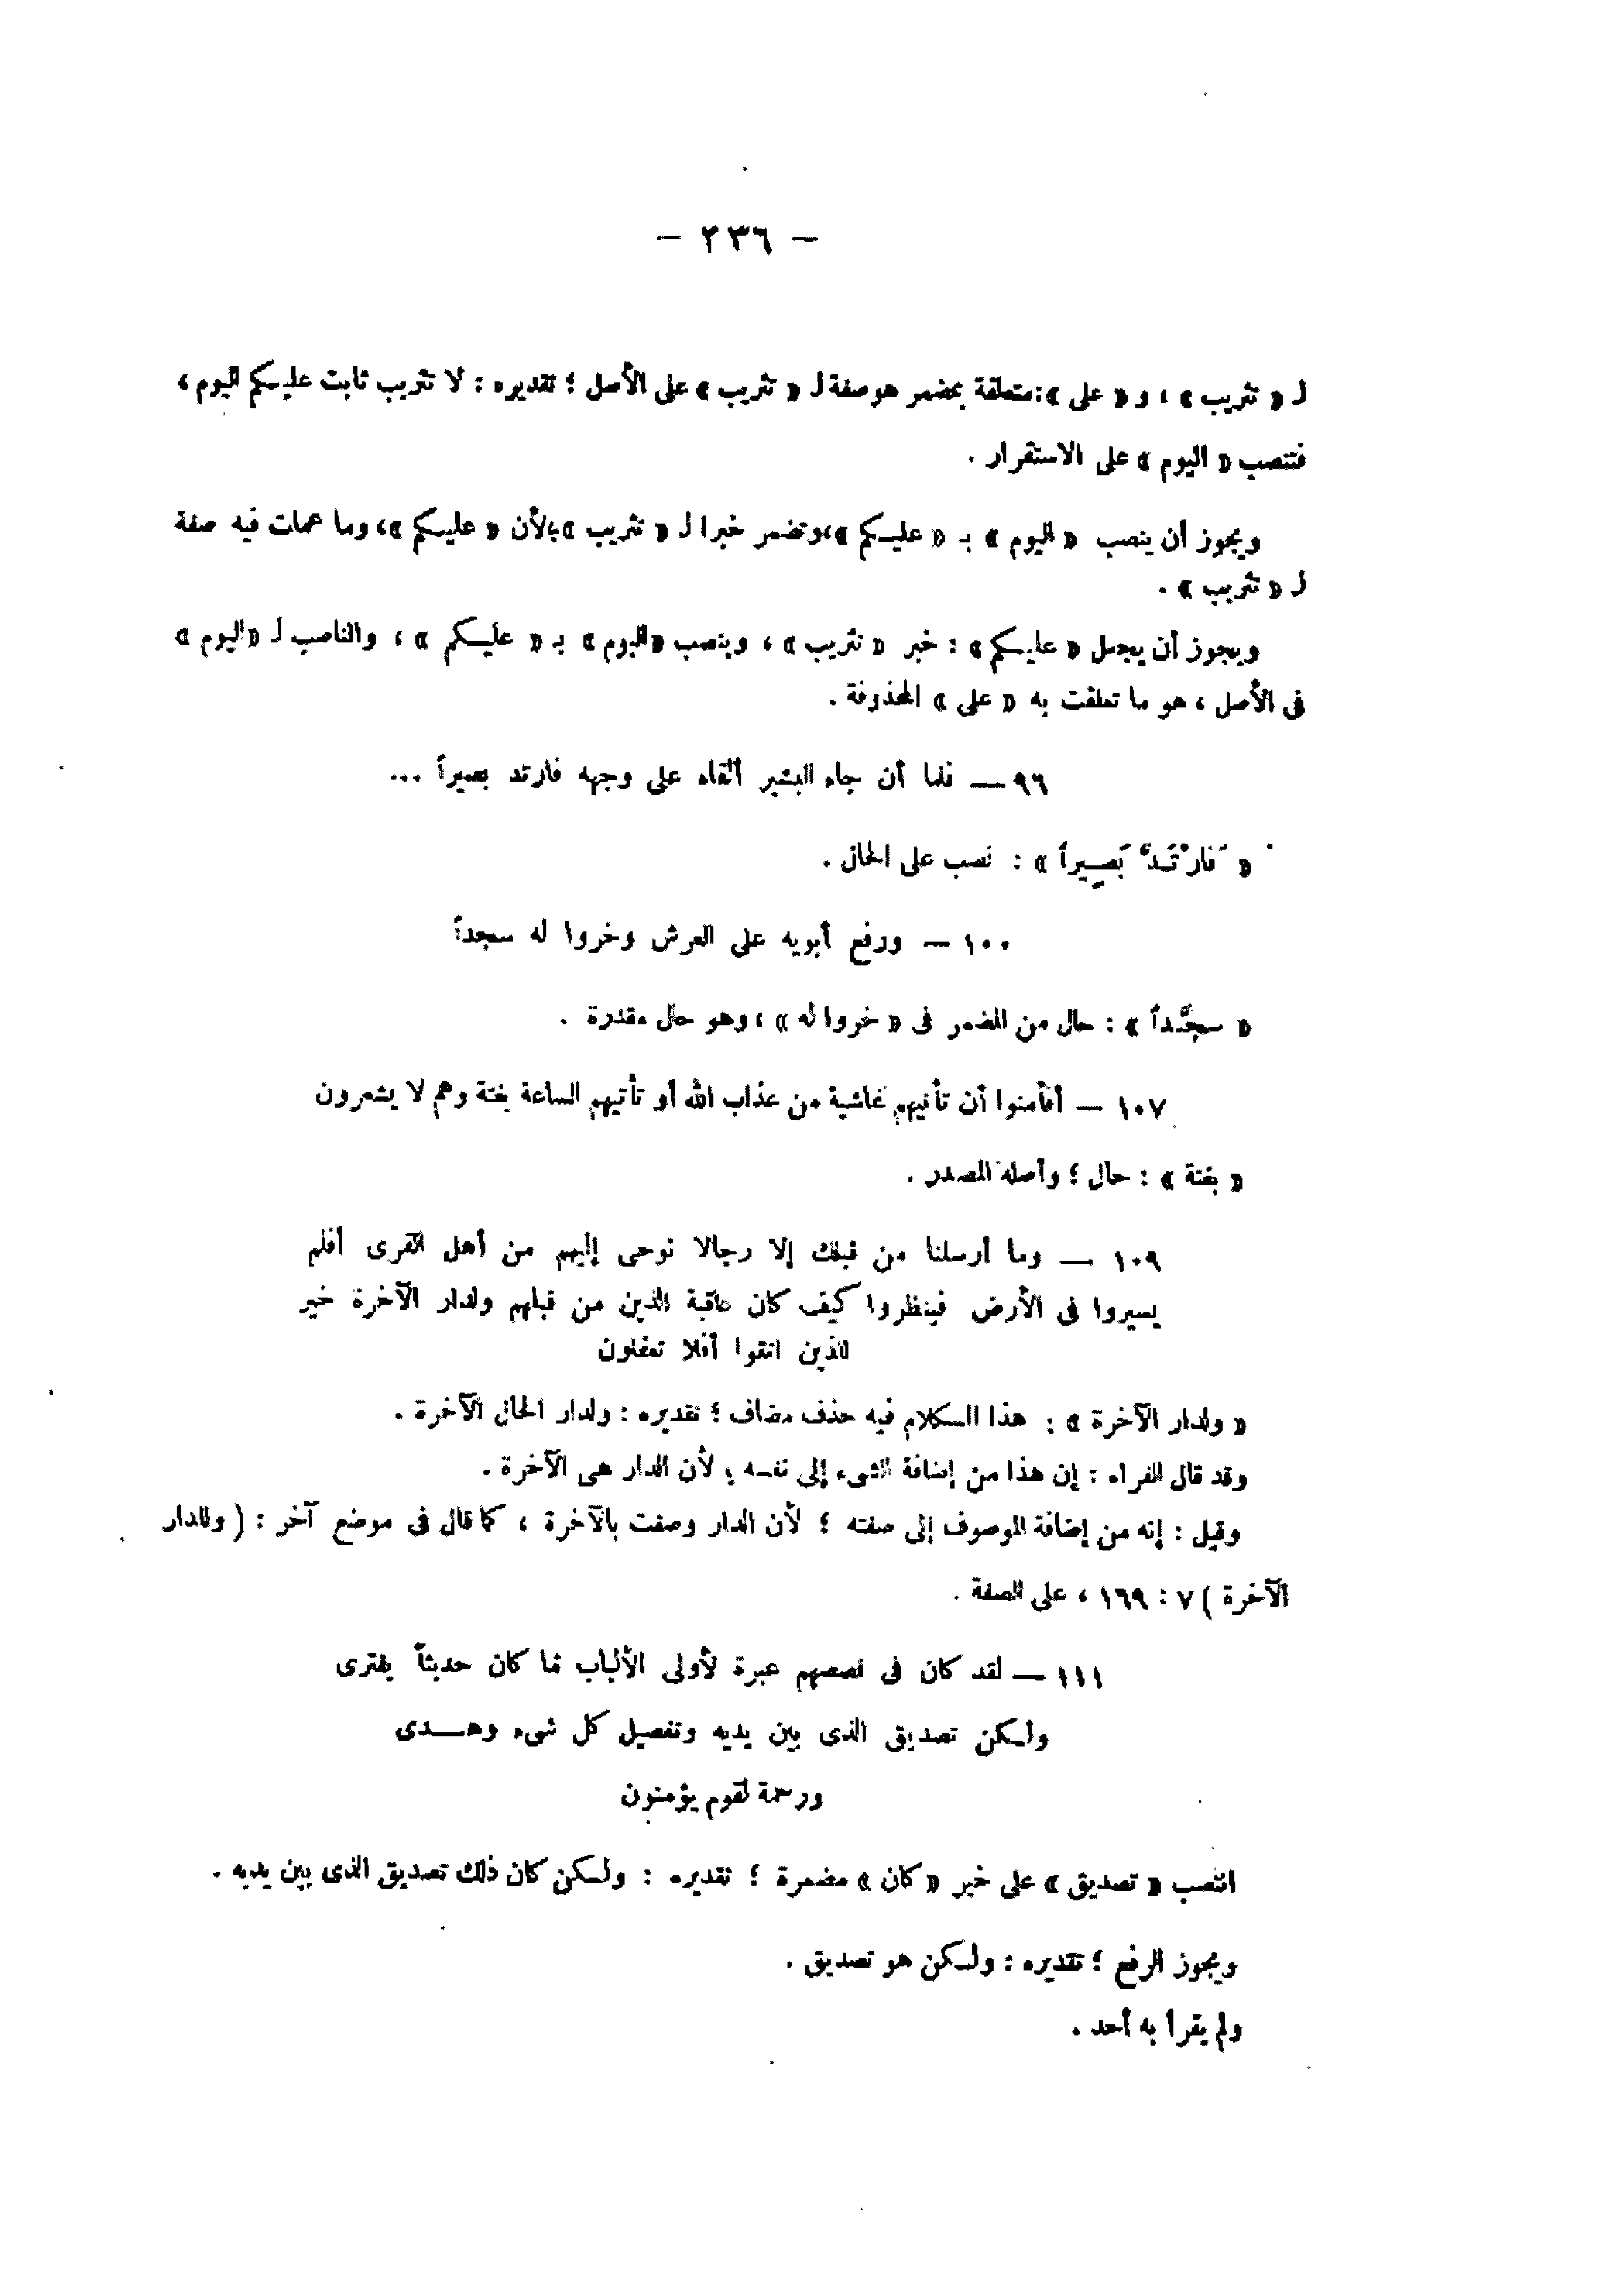 — ٢٣٦ —
لـ « تثريب » ، و « على »: متعلقة بمضمر هو صفة لـ « تثريب » على الأصل ؛ تقديره : لا تثريب ثابت عليكم اليوم ،
فتنصب « اليوم » على الاستقرار .
ويجوز أن ينصب « اليوم » بـ « عليكم »، وتضمر خبرا لـ « تثريب » ؛ لأن « عليكم »، وما عملت فيه صفة
لـ « تثريب » .
ويجوز أن يجعل « عليكم » : خبر « تثريب » ، وينصب « اليوم » بـ « عليكم » ، والناصب لـ « اليوم »
فى الأصل ، هو ما تعلقت به « على » المحذوفة .
٩٦ — فلما أن جاء البشير ألقاه على وجهه فارتد بصيراً ...
« فَارْتَدَّ بَصِيراً » : نصب على الحال .
١٠٠ — ورفع أبويه على العرش وخروا له سجداً
« سجَّداً » : حال من المضمر فى « خروا له » ، وهو حال مقدرة .
١٠٧ — أفأمنوا أن تأتيهم غاشية من عذاب الله أو تأتيهم الساعة بغتة وهم لا يشعرون
« بغتة » : حال ؛ وأصله المصدر .
١٠٩ — وما أرسلنا من قبلك إلا رجالا نوحى إليهم من أهل القرى أفلم
يسيروا فى الأرض فينظروا كيف كان عاقبة الذين من قبلهم ولدار الآخرة خير
للذين اتقوا أفلا تعقلون
« ولدار الآخرة » : هذا الكلام فيه حذف مضاف ؛ تقديره : ولدار الحال الآخرة .
وقد قال الفراء : إن هذا من إضافة الشىء إلى نفسه ؛ لأن الدار هى الآخرة .
وقيل : إنه من إضافة الموصوف إلى صفته ؛ لأن الدار وصفت بالآخرة ، كما قال فى موضع آخر : ( وللدار
الآخرة ) ٧ : ١٦٩ ، على الصفة .
١١١ — لقد كان فى قصصهم عبرة لأولى الألباب ما كان حديثاً يفترى
ولكن تصديق الذى بين يديه وتفصيل كل شىء وهـــدى
ورحمة لقوم يؤمنون
انتصب « تصديق » على خبر « كان » مضمرة ؛ تقديره : ولكن كان ذلك تصديق الذى بين يديه .
ويجوز الرفع ؛ تقديره : ولكن هو تصديق .
ولم يقرأ به أحد .